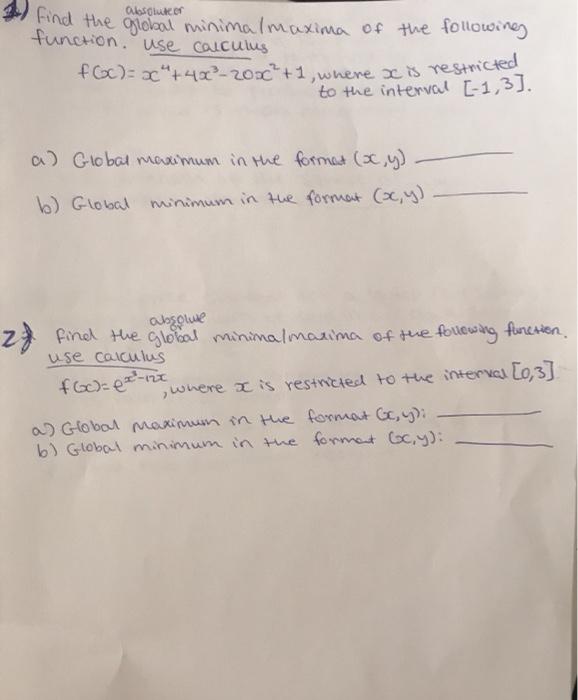 1) absolute or
Find the global minima/maxima of the following
function. use calculus
f(x)= x⁴+4x³-20x²+1, where x is restricted
to the interval [-1,3].
a) Global maximum in the format (x,y)
b) Global minimum in the format (x,y)
absolute
2) find the global minima/maxima of the following function.
use calculus
f(x)=e^x³-12x, where x is restricted to the interval [0,3]
a) Global Maximum in the format (x,y):
b) Global minimum in the format (x,y):